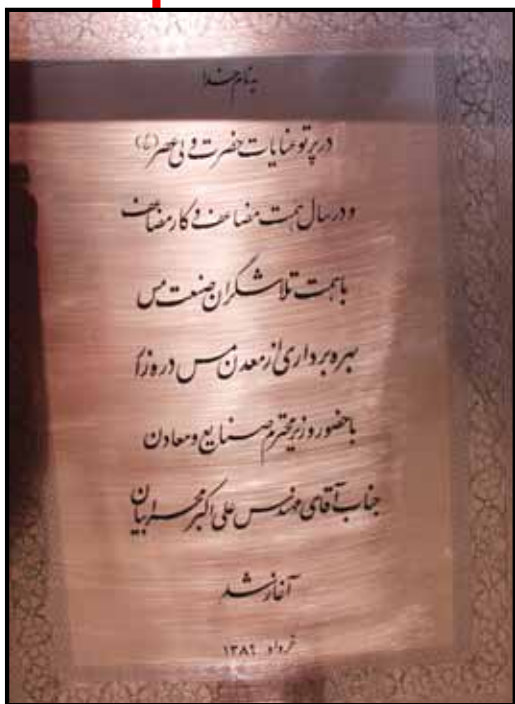 بنام خدا
در پرتو عنایات حضرت ولی عصر (عج)
و در سال همت مضاعف و کار مضاعف
با همت تلاشگران صنعت مس
بهره برداری از معدن مس دره زار
با حضور وزیر محترم صنایع و معادن
جناب آقای مهندس علی اکبر محرابیان
آغاز شد
خرداد ۱۳۸۹